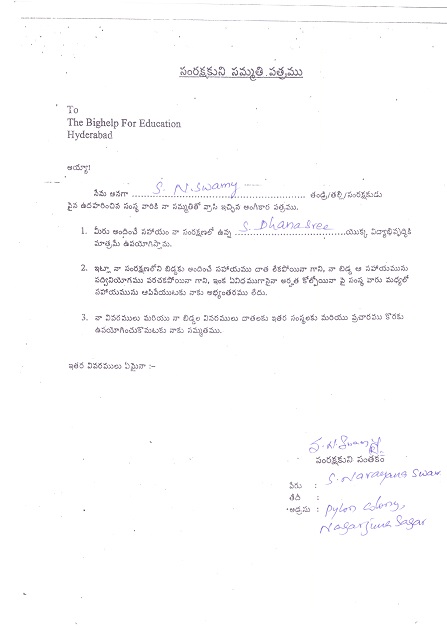 సంరక్షకుని సమ్మతి పత్రము
To
The Bighelp For Education
Hyderabad
అయ్యా!
నేను అనగా S. N. Swamy తండ్రి/తల్లి/సంరక్షకుడు
పైన ఉదహరించిన సంస్థ వారికి నా సమ్మతితో వ్రాసి ఇచ్చిన అంగీకార పత్రము.
1. మీరు అందించే సహాయం నా సంరక్షణలో ఉన్న S. Dhanasree యొక్క విద్యాభివృద్ధికి
మాత్రమే ఉపయోగిస్తాను.
2. ఇట్లా నా సంరక్షణలోని బిడ్డకు అందించే సహాయము దాత లేకపోయినా గాని, నా బిడ్డ ఆ సహాయమును
సద్వినియోగము పరచకపోయినా గాని, ఇంక ఏవిధముగానైనా అర్హత కోల్పోయినా పై సంస్థ వారు మధ్యలో
సహాయమును ఆపివేయుటకు నాకు అభ్యంతరము లేదు.
3. నా వివరములు మరియు నా బిడ్డల వివరములు దాతలకు ఇతర సంస్థలకు మరియు ప్రచారము కొరకు
ఉపయోగించుకొనుటకు నాకు సమ్మతము.
ఇతర వివరములు ఏమైనా :-
సంరక్షకుని సంతకం
పేరు : S. Narayana Swam
తేదీ :
అడ్రసు : Pylon colony,
Nagarjuna Sagar